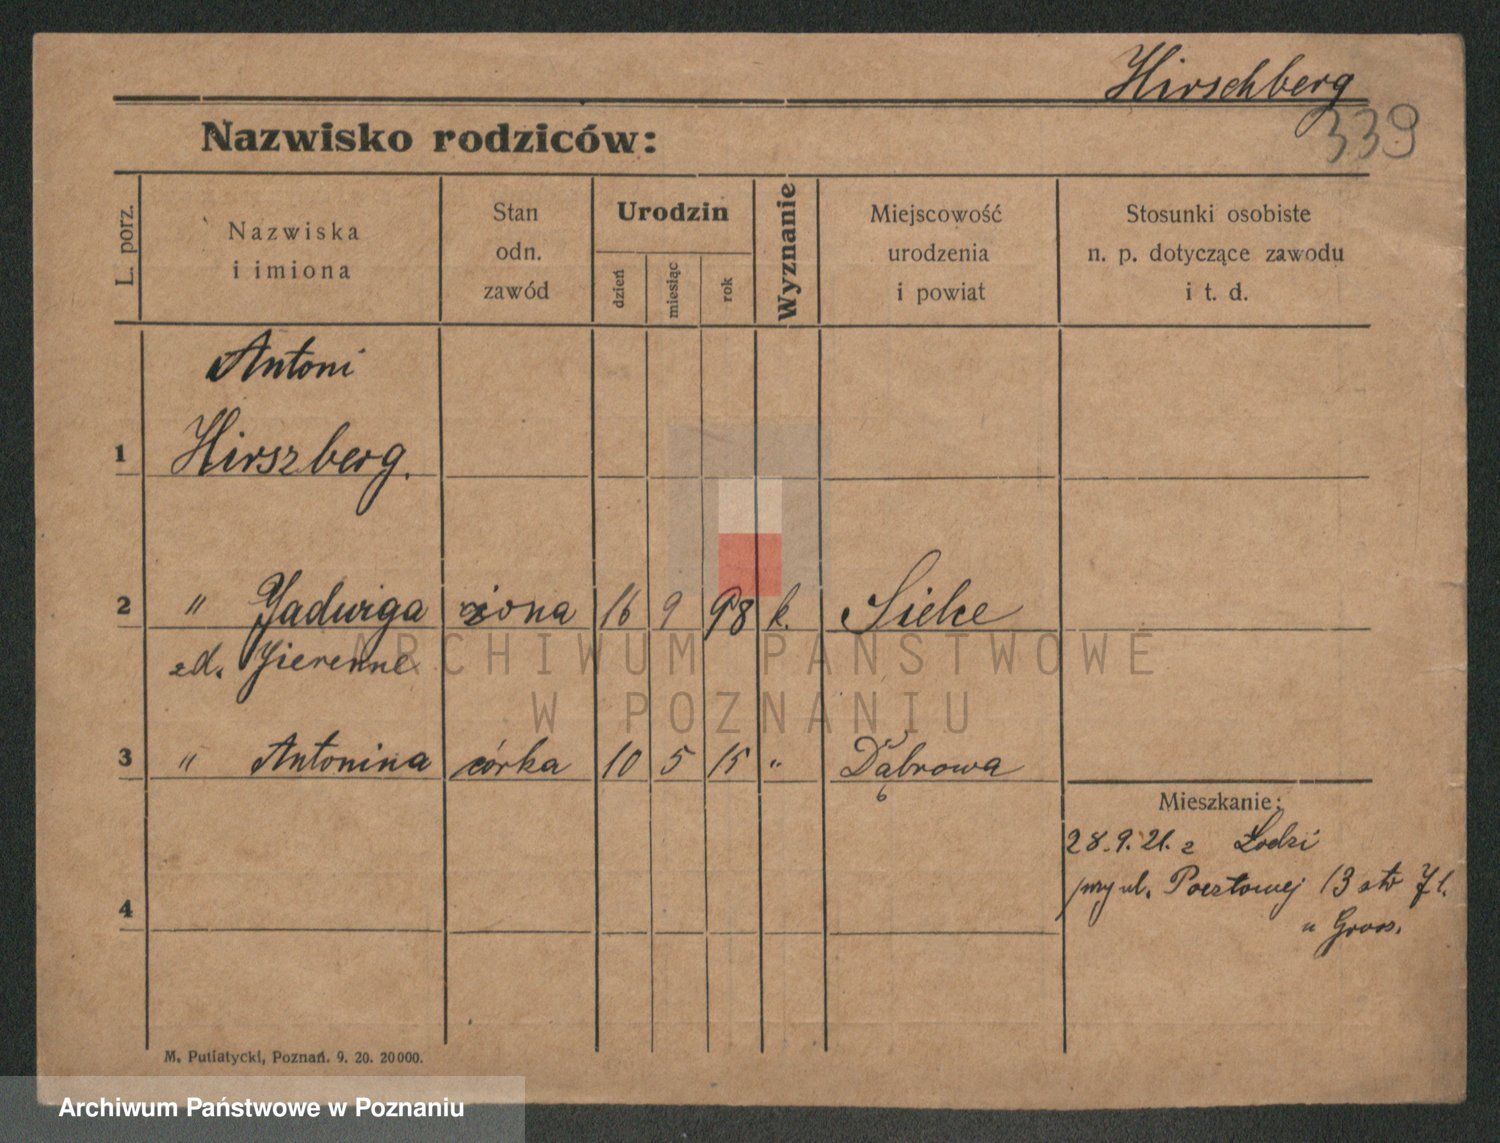 Hirschberg
339
Nazwisko rodziców:
L. porz.
Nazwiska
i imiona
Stan
odn.
zawód
Urodzin
dzień
miesiąc
rok
Wyznanie
Miejscowość
urodzenia
i powiat
Stosunki osobiste
n. p. dotyczące zawodu
i t. d.
Antoni
1 Hirszberg.
2 " Jadwiga żona 16 9 98 k. Sielce
zd.
3 " Antonina córka 10 5 15 " Dąbrowa
Mieszkanie:
28.9.21. z Łodzi
przy ul. Pocztowej 13
4
u Gross.
M. Putiatycki, Poznań. 9. 20. 20000.
ARCHIWUM PAŃSTWOWE
W POZNANIU
Archiwum Państwowe w Poznaniu